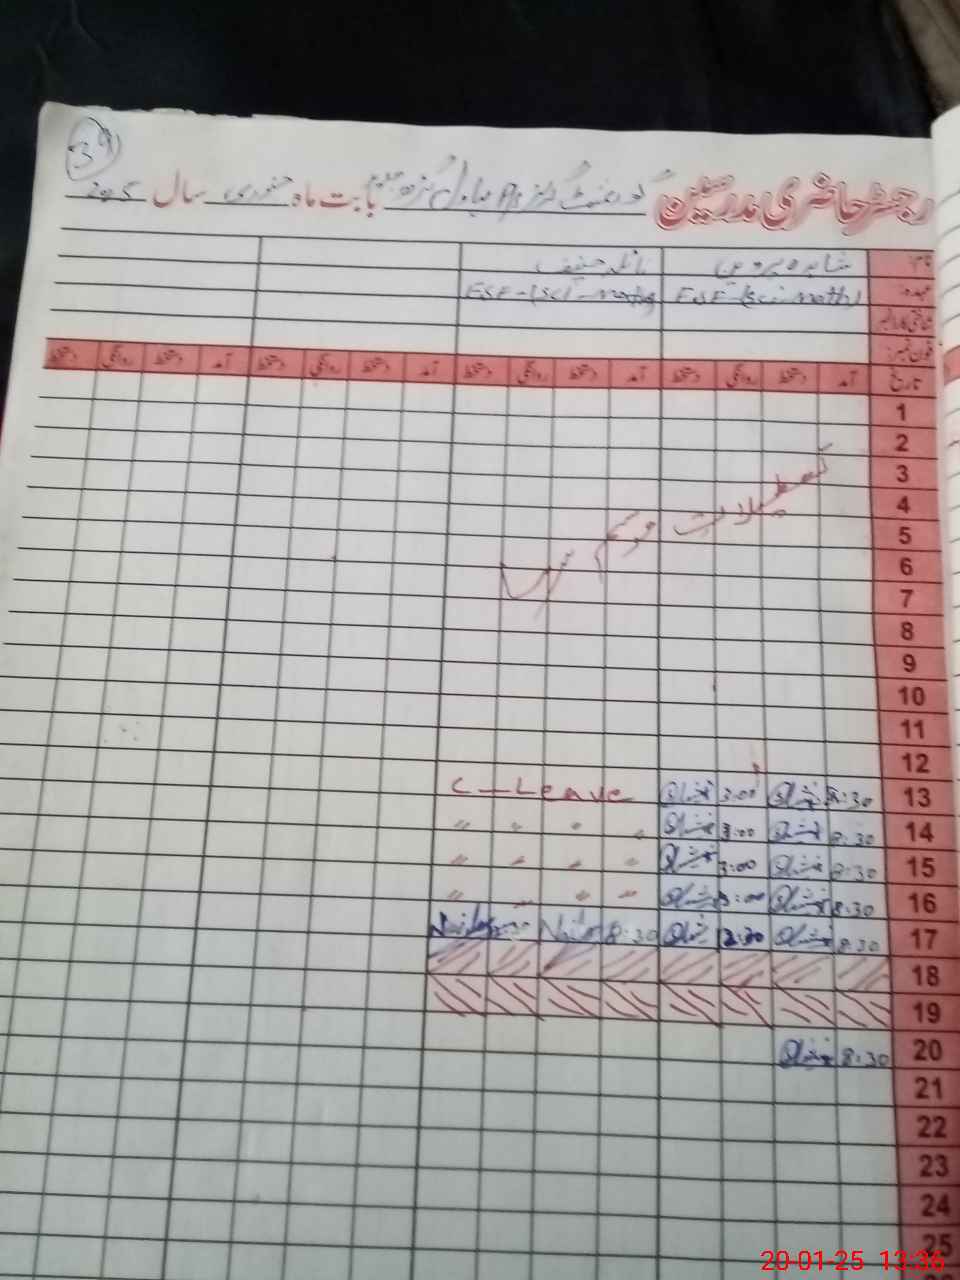 39
رجسٹر حاضری مدرسین گورنمنٹ گرلز P/S بابت ماہ جنوری سال 2025
نام: شاہدہ پروین نائلہ حنیف
عہدہ: ESE-(Sci-math) ESE-(Sci-maths)
شناختی کارڈ نمبر
فون نمبر:
تاریخ آمد دستخط روانگی دستخط آمد دستخط روانگی دستخط آمد دستخط روانگی دستخط آمد دستخط روانگی دستخط
1
2
3
4
5
6
7
تعطیلات موسم سرما
8
9
10
11
12
13 8:30 3:00 C-Leave
14 8:30 3:00 " " " "
15 8:30 3:00 " " " "
16 8:30 3:00 " " " "
17 8:30 12:30 8:30 Naila Naila
18
19
20 8:30
21
22
23
24
25
20-01-25 13:36